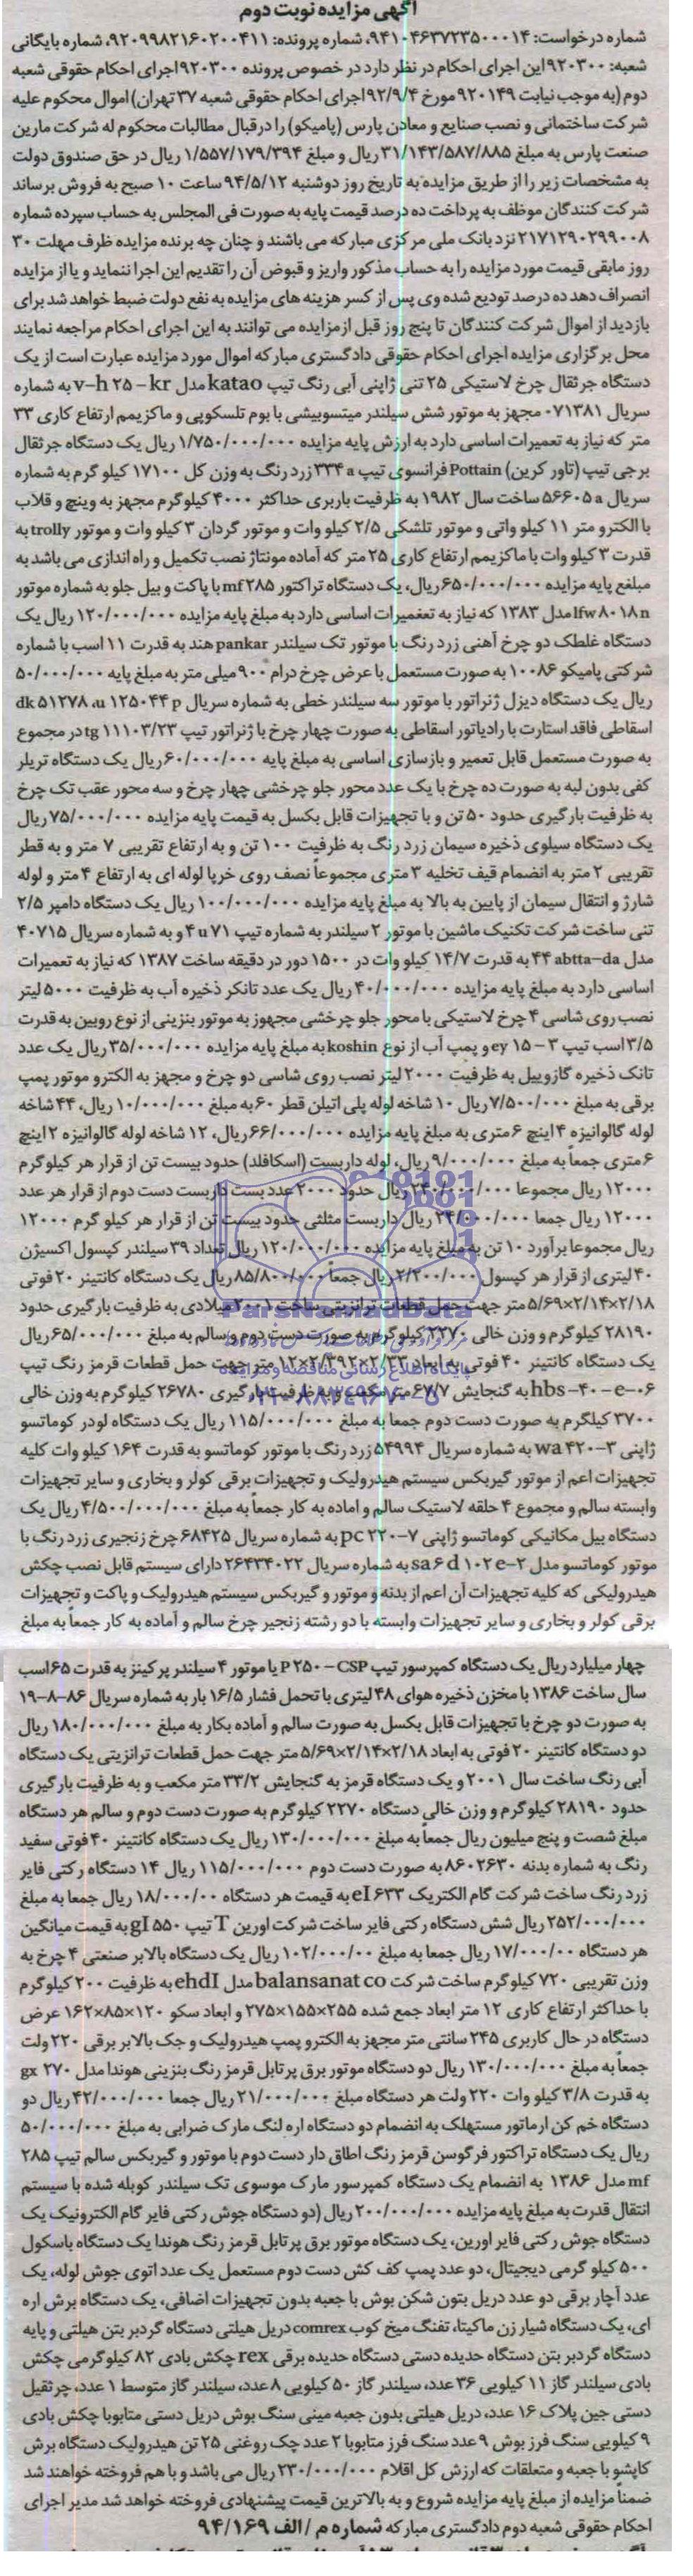 آگهی مزایده نوبت دوم
شماره درخواست: ۹۴۱۰۴۶۳۷۲۳۵۰۰۰۱۴، شماره پرونده: ۹۲۰۹۹۸۲۱۶۰۲۰۰۴۱۱، شماره بایگانی
شعبه: ۹۲۰۳۰۰ این اجرای احکام در نظر دارد در خصوص پرونده ۹۲۰۳۰۰ اجرای احکام حقوقی شعبه
دوم (به موجب نیابت ۹۲۰۱۴۹ مورخ ۹۲/۹/۴ اجرای احکام حقوقی شعبه ۳۷ تهران) اموال محکوم علیه
شرکت ساختمانی و نصب صنایع و معادن پارس (پامیکو) را در قبال مطالبات محکوم له شرکت مارین
صنعت پارس به مبلغ ۳۱/۱۴۳/۵۸۷/۸۸۵ ریال و مبلغ ۱/۵۵۷/۱۷۹/۳۹۴ ریال در حق صندوق دولت
به مشخصات زیر را از طریق مزایده به تاریخ روز دوشنبه ۹۴/۵/۱۲ ساعت ۱۰ صبح به فروش برساند
شرکت کنندگان موظف به پرداخت ده درصد قیمت پایه به صورت فی المجلس به حساب سپرده شماره
۲۱۷۱۲۹۰۲۹۹۰۰۸ نزد بانک ملی مرکزی مبارکه می باشند و چنان چه برنده مزایده ظرف مهلت ۳۰
روز مابقی قیمت مورد مزایده را به حساب مذکور واریز و قبوض آن را تقدیم این اجرا ننماید و یا از مزایده
انصراف دهد ده درصد تودیع شده وی پس از کسر هزینه های مزایده به نفع دولت ضبط خواهد شد برای
بازدید از اموال شرکت کنندگان تا پنج روز قبل از مزایده می توانند به این اجرای احکام مراجعه نمایند
محل برگزاری مزایده اجرای احکام حقوقی دادگستری مبارکه اموال مورد مزایده عبارت است از یک
دستگاه جرثقال چرخ لاستیکی ۲۵ تنی ژاپنی آبی رنگ تیپ katao مدل v-h ۲۵ - kr به شماره
سریال ۰۷۱۳۸۱ مجهز به موتور شش سیلندر میتسوبیشی با بوم تلسکوپی و ماکزیمم ارتفاع کاری ۳۳
متر که نیاز به تعمیرات اساسی دارد به ارزش پایه مزایده ۱/۷۵۰/۰۰۰/۰۰۰ ریال یک دستگاه جرثقال
برجی تیپ (تاور کرین) Pottain فرانسوی تیپ ۳۳۴ a زرد رنگ به وزن کل ۱۷۱۰۰ کیلو گرم به شماره
سریال ۵۶۶۰۵ a ساخت سال ۱۹۸۲ به ظرفیت باربری حداکثر ۴۰۰۰ کیلوگرم مجهز به وینچ و قلاب
با الکترو متر ۱۱ کیلو واتی و موتور تلشکی ۲/۵ کیلو وات و موتور گردان ۳ کیلو وات و موتور trolly به
قدرت ۳ کیلو وات با ماکزیمم ارتفاع کاری ۲۵ متر که آماده مونتاژ نصب تکمیل و راه اندازی می باشد به
مبلغ پایه مزایده ۶۵۰/۰۰۰/۰۰۰ ریال، یک دستگاه تراکتور mf۲۸۵ با پاکت و بیل جلو به شماره موتور
lfw۸۰۱۸n مدل ۱۳۸۳ که نیاز به تعغمیرات اساسی دارد به مبلغ پایه مزایده ۱۲۰/۰۰۰/۰۰۰ ریال یک
دستگاه غلطک دو چرخ آهنی زرد رنگ با موتور تک سیلندر pankar هند به قدرت ۱۱ اسب با شماره
شرکتی پامیکو ۱۰۰۸۶ به صورت مستعمل با عرض چرخ درام ۹۰۰ میلی متر به مبلغ پایه ۵۰/۰۰۰/۰۰۰
ریال یک دستگاه دیزل ژنراتور با موتور سه سیلندر خطی به شماره سریال dk ۵۱۲۷۸ ،u ۱۲۵۰۴۴ p
اسقاطی فاقد استارت با رادیاتور اسقاطی به صورت چهار چرخ با ژنراتور تیپ tg ۱۱۱۰۳/۲۳ در مجموع
به صورت مستعمل قابل تعمیر و بازسازی اساسی به مبلغ پایه ۶۰/۰۰۰/۰۰۰ ریال یک دستگاه تریلر
کفی بدون لبه به صورت ده چرخ با یک عدد محور جلو چرخشی چهار چرخ و سه محور عقب تک چرخ
به ظرفیت بارگیری حدود ۵۰ تن و با تجهیزات قابل بکسل به قیمت پایه مزایده ۷۵/۰۰۰/۰۰۰ ریال
یک دستگاه سیلوی ذخیره سیمان زرد رنگ به ظرفیت ۱۰۰ تن و به ارتفاع تقریبی ۷ متر و به قطر
تقریبی ۲ متر به انضمام قیف تخلیه ۳ متری مجموعاً نصف روی خرپا لوله ای به ارتفاع ۴ متر و لوله
شارژ و انتقال سیمان از پایین به بالا به مبلغ پایه مزایده ۱۰۰/۰۰۰/۰۰۰ ریال یک دستگاه دامپر ۲/۵
تنی ساخت شرکت تکنیک ماشین با موتور ۲ سیلندر به شماره تیپ ۴u۷۱ و به شماره سریال ۴۰۷۱۵
مدل abtta-da ۴۴ به قدرت ۱۴/۷ کیلو وات در ۱۵۰۰ دور در دقیقه ساخت ۱۳۸۷ که نیاز به تعمیرات
اساسی دارد به مبلغ پایه مزایده ۴۰/۰۰۰/۰۰۰ ریال یک عدد تانکر ذخیره آب به ظرفیت ۵۰۰۰ لیتر
نصب روی شاسی ۴ چرخ لاستیکی با محور جلو چرخشی مجهوز به موتور بنزینی از نوع روبین به قدرت
۳/۵ اسب تیپ ey ۱۵ - ۳ و پمپ آب از نوع koshin به مبلغ پایه مزایده ۳۵/۰۰۰/۰۰۰ ریال یک عدد
تانک ذخیره گازوییل به ظرفیت ۲۰۰۰ لیتر نصب روی شاسی دو چرخ و مجهز به الکترو موتور پمپ
برقی به مبلغ ۷/۵۰۰/۰۰۰ ریال ۱۰ شاخه لوله پلی اتیلن قطر ۶۰ به مبلغ ۱۰/۰۰۰/۰۰۰ ریال، ۴۴ شاخه
لوله گالوانیزه ۴ اینچ ۶ متری به مبلغ پایه مزایده ۶۶/۰۰۰/۰۰۰ ریال، ۱۲ شاخه لوله گالوانیزه ۲ اینچ
۶ متری جمعاً به مبلغ ۹/۰۰۰/۰۰۰ ریال، لوله داربست (اسکافلد) حدود بیست تن از قرار هر کیلوگرم
۱۲۰۰۰ ریال مجموعا ۲۴۰/۰۰۰/۰۰۰ ریال حدود ۲۰۰۰ عدد بست داربست دست دوم از قرار هر عدد
۱۲۰۰۰ ریال جمعا ۲۴/۰۰۰/۰۰۰ ریال داربست مثلثی حدود بیست تن از قرار هر کیلو گرم ۱۲۰۰۰
ریال مجموعا برآورد ۱۰ تن به مبلغ پایه مزایده ۱۲۰/۰۰۰/۰۰۰ ریال تعداد ۳۹ سیلندر کپسول اکسیژن
۴۰ لیتری از قرار هر کپسول ۲/۲۰۰/۰۰۰ ریال جمعاً ۸۵/۸۰۰/۰۰۰ ریال یک دستگاه کانتینر ۲۰ فوتی
۵/۶۹×۲/۱۴×۲/۱۸ متر جهت حمل قطعات ترانزیتی ساخت ۲۰۰۱ میلادی به ظرفیت بارگیری حدود
۲۸۱۹۰ کیلوگرم و وزن خالی ۲۲۷۰ کیلوگرم به صورت دست دوم و سالم به مبلغ ۶۵/۰۰۰/۰۰۰ ریال
یک دستگاه کانتینر ۴۰ فوتی به ابعاد ۱۲×۲/۳۹۲×۲/۳۳ متر جهت حمل قطعات قرمز رنگ تیپ
hbs -۴۰ - e-۰۶ به گنجایش ۶۷/۷ متر مکعب و به ظرفیت بارگیری ۲۶۷۸۰ کیلوگرم به وزن خالی
۳۷۰۰ کیلگرم به صورت دست دوم جمعا به مبلغ ۱۱۵/۰۰۰/۰۰۰ ریال یک دستگاه لودر کوماتسو
ژاپنی wa ۴۲۰-۳ به شماره سریال ۵۴۹۹۴ زرد رنگ با موتور کوماتسو به قدرت ۱۶۴ کیلو وات کلیه
تجهیزات اعم از موتور گیربکس سیستم هیدرولیک و تجهیزات برقی کولر و بخاری و سایر تجهیزات
وابسته سالم و مجموع ۴ حلقه لاستیک سالم و اماده به کار جمعاً به مبلغ ۴/۵۰۰/۰۰۰/۰۰۰ ریال یک
دستگاه بیل مکانیکی کوماتسو ژاپنی pc ۲۲۰-۷ به شماره سریال ۶۸۴۲۵ چرخ زنجیری زرد رنگ با
موتور کوماتسو مدل sa۶d ۱۰۲e-۲ به شماره سریال ۲۶۴۳۴۰۲۲ دارای سیستم قابل نصب چکش
هیدرولیکی که کلیه تجهیزات آن اعم از بدنه و موتور و گیربکس سیستم هیدرولیک و پاکت و تجهیزات
برقی کولر و بخاری و سایر تجهیزات وابسته با دو رشته زنجیر چرخ سالم و آماده به کار جمعاً به مبلغ
چهار میلیارد ریال یک دستگاه کمپرسور تیپ P ۲۵۰ - CSP با موتور ۴ سیلندر پرکینز به قدرت ۶۵ اسب
سال ساخت ۱۳۸۶ با مخزن ذخیره هوای ۴۸ لیتری با تحمل فشار ۱۶/۵ بار به شماره سریال ۸۶-۸-۱۹
به صورت دو چرخ با تجهیزات قابل بکسل به صورت سالم و آماده بکار به مبلغ ۱۸۰/۰۰۰/۰۰۰ ریال
دو دستگاه کانتینر ۲۰ فوتی به ابعاد ۵/۶۹×۲/۱۴×۲/۱۸ متر جهت حمل قطعات ترانزیتی یک دستگاه
آبی رنگ ساخت سال ۲۰۰۱ و یک دستگاه قرمز به گنجایش ۳۳/۲ متر مکعب و به ظرفیت بارگیری
حدود ۲۸۱۹۰ کیلوگرم و وزن خالی دستگاه ۲۲۷۰ کیلوگرم به صورت دست دوم و سالم هر دستگاه
مبلغ شصت و پنج میلیون ریال جمعاً به مبلغ ۱۳۰/۰۰۰/۰۰۰ ریال یک دستگاه کانتینر ۴۰ فوتی سفید
رنگ به شماره بدنه ۸۶۰۲۶۳۰ به صورت دست دوم ۱۱۵/۰۰۰/۰۰۰ ریال ۱۴ دستگاه رکتی فایر
زرد رنگ ساخت شرکت گام الکتریک eI۶۳۳ به قیمت هر دستگاه ۱۸/۰۰۰/۰۰ ریال جمعا به مبلغ
۲۵۲/۰۰۰/۰۰۰ ریال شش دستگاه رکتی فایر ساخت شرکت اورین T تیپ gI ۵۵۰ به قیمت میانگین
هر دستگاه ۱۷/۰۰۰/۰۰ ریال جمعا به مبلغ ۱۰۲/۰۰۰/۰۰ ریال یک دستگاه بالابر صنعتی ۴ چرخ به
وزن تقریبی ۷۲۰ کیلوگرم ساخت شرکت balansanat co مدل ehdI به ظرفیت ۲۰۰ کیلوگرم
با حداکثر ارتفاع کاری ۱۲ متر ابعاد جمع شده ۲۷۵×۱۵۵×۲۵۵ و ابعاد سکو ۱۶۲×۸۵×۱۲۰ عرض
دستگاه در حال کاربری ۲۴۵ سانتی متر مجهز به الکترو پمپ هیدرولیک و جک بالابر برقی ۲۲۰ ولت
جمعاً به مبلغ ۱۳۰/۰۰۰/۰۰۰ ریال دو دستگاه موتور برق پرتابل قرمز رنگ بنزینی هوندا مدل gx ۲۷۰
به قدرت ۳/۸ کیلو وات ۲۲۰ ولت هر دستگاه مبلغ ۲۱/۰۰۰/۰۰۰ ریال جمعا ۴۲/۰۰۰/۰۰۰ ریال دو
دستگاه خم کن ارماتور مستهلک به انضمام دو دستگاه اره لنگ مارک ضرابی به مبلغ ۵۰/۰۰۰/۰۰۰
ریال یک دستگاه تراکتور فرگوسن قرمز رنگ اطاق دار دست دوم با موتور و گیربکس سالم تیپ ۲۸۵
mf مدل ۱۳۸۶ به انضمام یک دستگاه کمپرسور مارک موسوی تک سیلندر کوبله شده با سیستم
انتقال قدرت به مبلغ پایه مزایده ۲۰۰/۰۰۰/۰۰۰ ریال (دو دستگاه جوش رکتی فایر گام الکترونیک یک
دستگاه جوش رکتی فایر اورین، یک دستگاه موتور برق پرتابل قرمز رنگ هوندا یک دستگاه باسکول
۵۰۰ کیلو گرمی دیجیتال، دو عدد پمپ کف کش دست دوم مستعمل یک عدد اتوی جوش لوله، یک
عدد آچار برقی دو عدد دریل بتون شکن بوش با جعبه بدون تجهیزات اضافی، یک دستگاه برش اره
ای، یک دستگاه شیار زن ماکیتا، تفنگ میخ کوب comrex دریل هیلتی دستگاه گردبر بتن هیلتی و پایه
دستگاه گردبر بتن دستگاه حدیده دستی دستگاه حدیده برقی rex چکش بادی ۸۲ کیلوگرمی چکش
بادی سیلندر گاز ۱۱ کیلویی ۳۶ عدد، سیلندر گاز ۵۰ کیلویی ۸ عدد، سیلندر گاز متوسط ۱ عدد، چرثقیل
دستی جین پلاک ۱۶ عدد، دریل هیلتی بدون جعبه مینی سنگ بوش دریل دستی متابوبا چکش بادی
۹ کیلویی سنگ فرز بوش ۹ عدد سنگ فرز متابوبا ۲ عدد چک روغنی ۲۵ تن هیدرولیک دستگاه برش
کاپشو با جعبه و متعلقات که ارزش کل اقلام ۲۳۰/۰۰۰/۰۰۰ ریال می باشد و با هم فروخته خواهند شد
ضمناً مزایده از مبلغ پایه مزایده شروع و به بالاترین قیمت پیشنهادی فروخته خواهد شد مدیر اجرای
احکام حقوقی شعبه دوم دادگستری مبارکه شماره م / الف ۹۴/۱۶۹
ParsNamadData
پایگاه اطلاع رسانی مناقصه و مزایده
۰۲۱-۸۸۳۴۹۶۷۰-۵